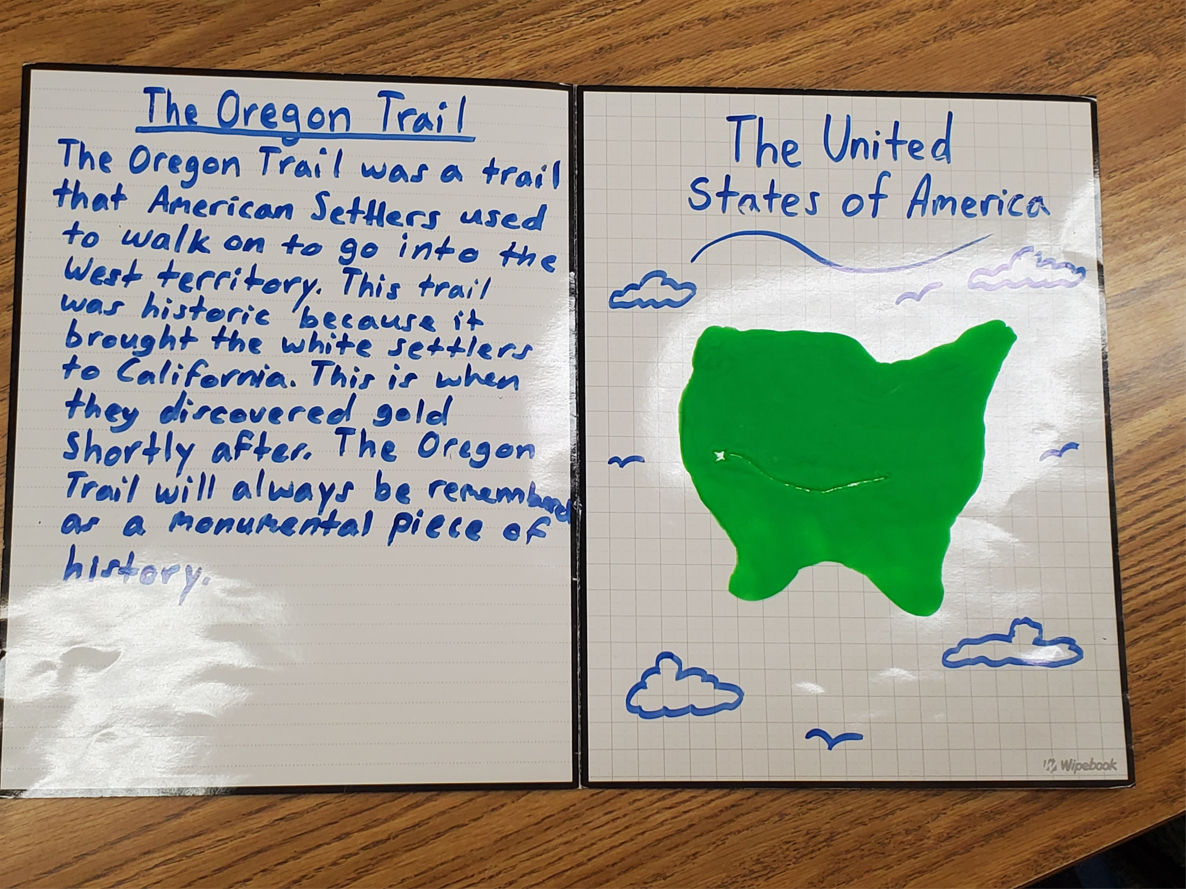 The Oregon Trail
The Oregon Trail was a trail
that American Settlers used
to walk on to go into the
West territory. This trail
was historic because it
brought the white settlers
to California. This is when
they discovered gold
shortly after. The Oregon
Trail will always be remembered
as a monumental piece of
history.
The United
States of America
Wipebook